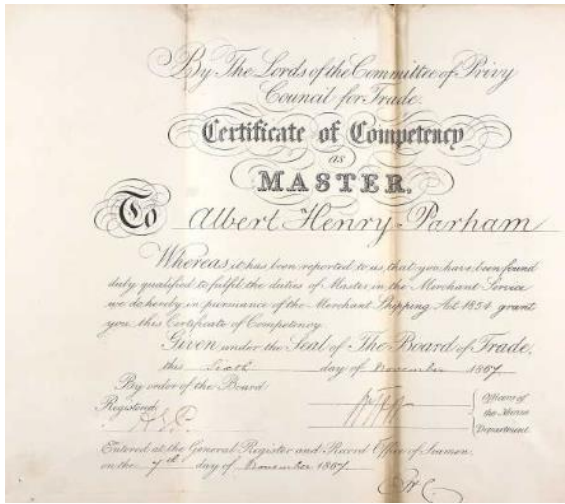 By The Lords of the Committee of Privy
Council for Trade.
Certificate of Competency
as
MASTER.
To Albert Henry Parham
Whereas it has been reported to us, that you have been found
duly qualified to fulfil the duties of Master in the Merchant Service
we do hereby in pursuance of the Merchant Shipping Act 1854 grant
you this Certificate of Competency
Given under the Seal of The Board of Trade,
this Sixth day of November 1867
By order of the Board.
Officers of
Registered
the Marine
Department
Entered at the General Register and Record Office of Seamen,
on the 7th day of November 1867